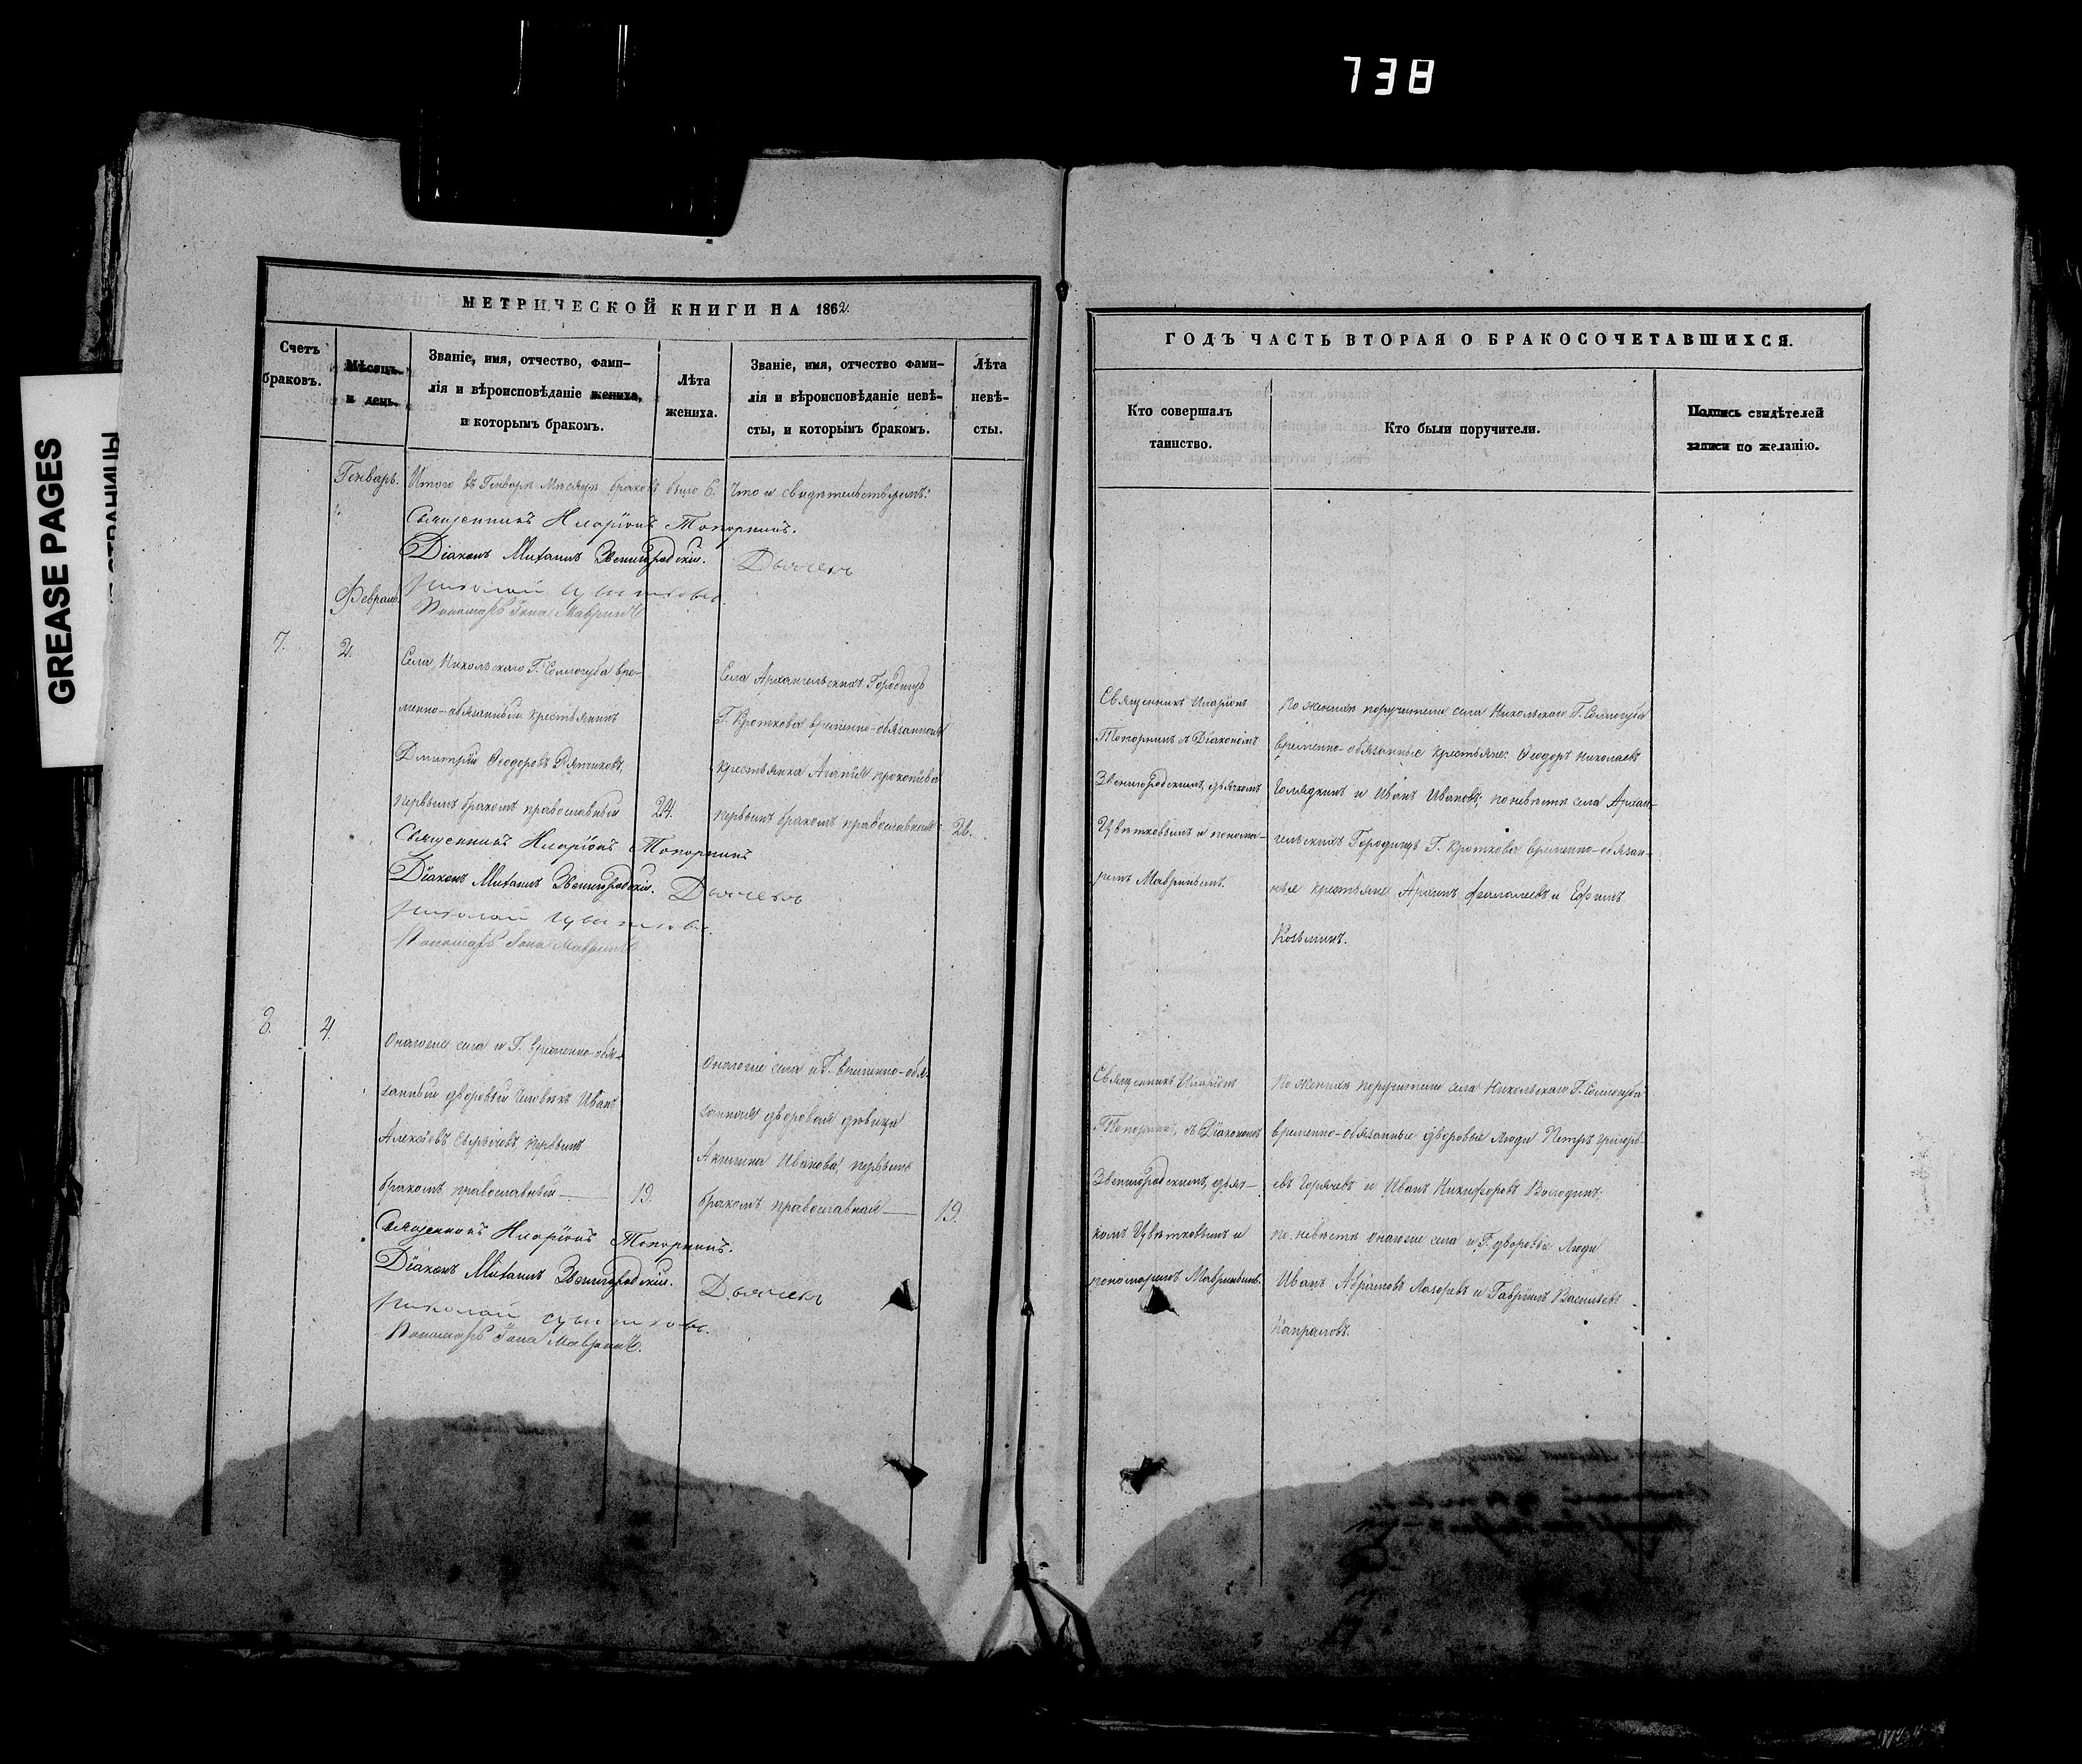 738
GREASE PAGES
МЕТРИЧЕСКОЙ КНИГИ НА 1862
Счетъ браковъ.
Мѣсяцъ и день.
Званіе, имя, отчество, фами-
лія и вѣроисповѣданіе жениха,
и которымъ бракомъ.
Лѣта
жениха.
Званіе, имя, отчество фами-
лія и вѣроисповѣданіе невѣ-
сты, и которымъ бракомъ.
Лѣта
невѣ-
сты.
Генварь. Итого въ Генварѣ мѣсяцѣ браковъ было 6. Что и свидѣтельствуемъ:
Священникъ Иларіонъ Топорнинъ.
Діаконъ Михаилъ Звенигородскій. Дьячекъ
Николай Цвѣтковъ.
Февраль.
Пономарь Іона Мавринъ
7. 2.
Села Никольскаго Г. Соллогуба вре-
менно-обязанный крестьянинъ
Димитрій Ѳеодоровъ
первымъ бракомъ православный 24.
Села Архангельскихъ Городищъ
Г. Кроткова временно-обязанная
крестьянка Агапія Прокопіева
первымъ бракомъ православная
Священникъ Иларіонъ Топорнинъ
Діаконъ Михаилъ Звенигородскій. Дьячекъ
Николай Цвѣтковъ.
Пономарь Іона Мавринъ
8. 4.
Онагоже села и Г. временно-обя-
занный дворовый человѣкъ Иванъ
Алексѣевъ первымъ
бракомъ православный 19.
Онагоже села и Г. временно-обя-
занная дворовая дѣвица
Акилина Иванова, первымъ
бракомъ православная 19.
Священникъ Иларіонъ Топорнинъ.
Діаконъ Михаилъ Звенигородскій. Дьячекъ
Николай Цвѣтковъ.
Пономарь Іона Мавринъ.
ГОДЪ ЧАСТЬ ВТОРАЯ О БРАКОСОЧЕТАВШИХСЯ.
Кто совершалъ
таинство.
Кто были поручители.
Подпись свидѣтелей
записи по желанію.
Священникъ Иларіонъ
Топорнинъ съ Діакономъ
Звенигородскимъ, дьячкомъ
Цвѣтковымъ и понома-
ремъ Мавринымъ.
По женихѣ поручители села Никольскаго Г. Соллогуба
временно-обязанные крестьяне: Ѳеодоръ Николаевъ
Голядкинъ и Иванъ Ивановъ; по невѣстѣ села Архан-
гельскихъ Городищъ Г. Кроткова временно-обязан-
ные крестьяне и Ефимъ
Козьминъ.
Священникъ Иларіонъ
Топорнинъ, съ Діакономъ
Звенигородскимъ, дьяч-
комъ Цвѣтковымъ и
пономаремъ Мавринымъ.
По женихѣ поручители села Никольскаго Г. Соллогуба
временно-обязанные дворовые люди Петръ Григорь-
евъ Горячевъ и Иванъ Никифоровъ Володинъ;
по невѣстѣ онагоже села и Г. дворовые люди
Иванъ Абрамовъ Лазаревъ и Гаврилъ Васильевъ
Капраловъ.